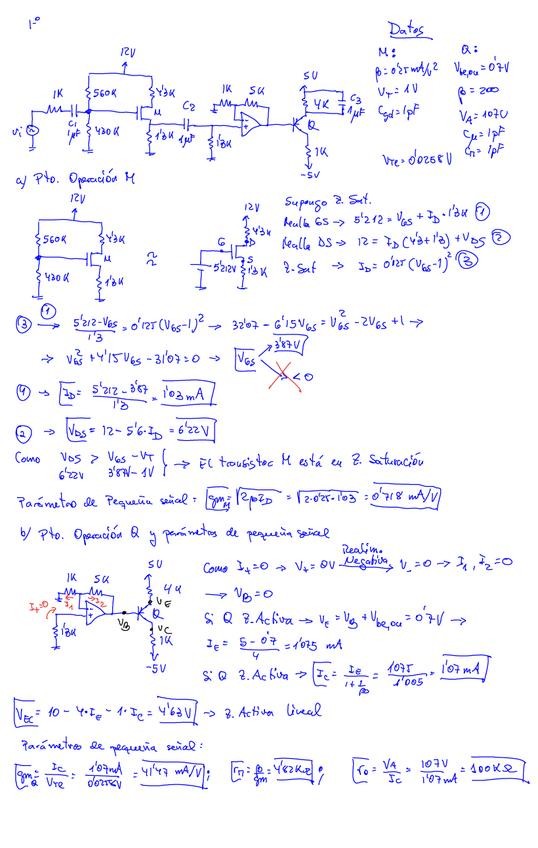 1º
Datos
M:
β=0'25 mA/V²
V_T = 1V
C_gd = 1pF
Q:
V_be,on = 0'7V
β = 200
V_A = 107V
C_μ = 1pF
C_π = 1pF
V_Te = 0'0258V
12V
1K
560K
4'3K
M
C1
1μF
430K
1'3K
C2
1μF
1'3K
1K
5K
5V
4K
C3
1μF
Q
1K
-5V
vi
a) Pto. Operación M
12V
560K
4'3K
M
430K
1'3K
≈
12V
4'3K
G
D
S
5'212V
1'3K
Supongo Z. Sat.
Malla GS → 5'212 = V_GS + I_D · 1'3K ①
Malla DS → 12 = I_D (4'3+1'3) + V_DS ②
Z. Sat → I_D = 0'125 (V_GS-1)² ③
③ ①→ (5'212 - V_GS)/1'3 = 0'125 (V_GS-1)² → 32'07 - 6'15V_GS = V_GS² - 2V_GS + 1 →
→ V_GS² + 4'15V_GS - 31'07 = 0 → V_GS
3'87V
< 0
④ → I_D = (5'212 - 3'87)/1'3 = 1'03 mA
② → V_DS = 12 - 5'6·I_D = 6'22V
Como V_DS > V_GS - V_T } → El transistor M está en Z. Saturación
6'22V 3'87V - 1V
Parámetros de Pequeña señal: gm_M = √(2βI_D) = √(2·0'25·1'03) = 0'718 mA/V
b) Pto. Operación Q y parámetros de pequeña señal
5V
1K
5K
4K
I+=0
I1
I2
V_E
Q
V_B
V_C
1'3K
1K
-5V
Como I+=0 → V+ = 0V Realim. Negativa → V- = 0 → I1, I2 = 0
→ V_B = 0
Si Q Z. Activa → V_E = V_B + V_be,on = 0'7V →
I_E = (5 - 0'7)/4 = 1'075 mA
Si Q Z. Activa → I_C = I_E/(1+1/β) = 1'075/1'005 = 1'07 mA
V_EC = 10 - 4·I_E - 1·I_C = 4'63V → Z. Activa lineal
Parámetros de pequeña señal:
gm_Q = I_C/V_Te = 1'07mA/0'0258V = 41'47 mA/V ; r_π = β/gm = 4'82KΩ ; r_o = V_A/I_C = 107V/1'07mA = 100KΩ